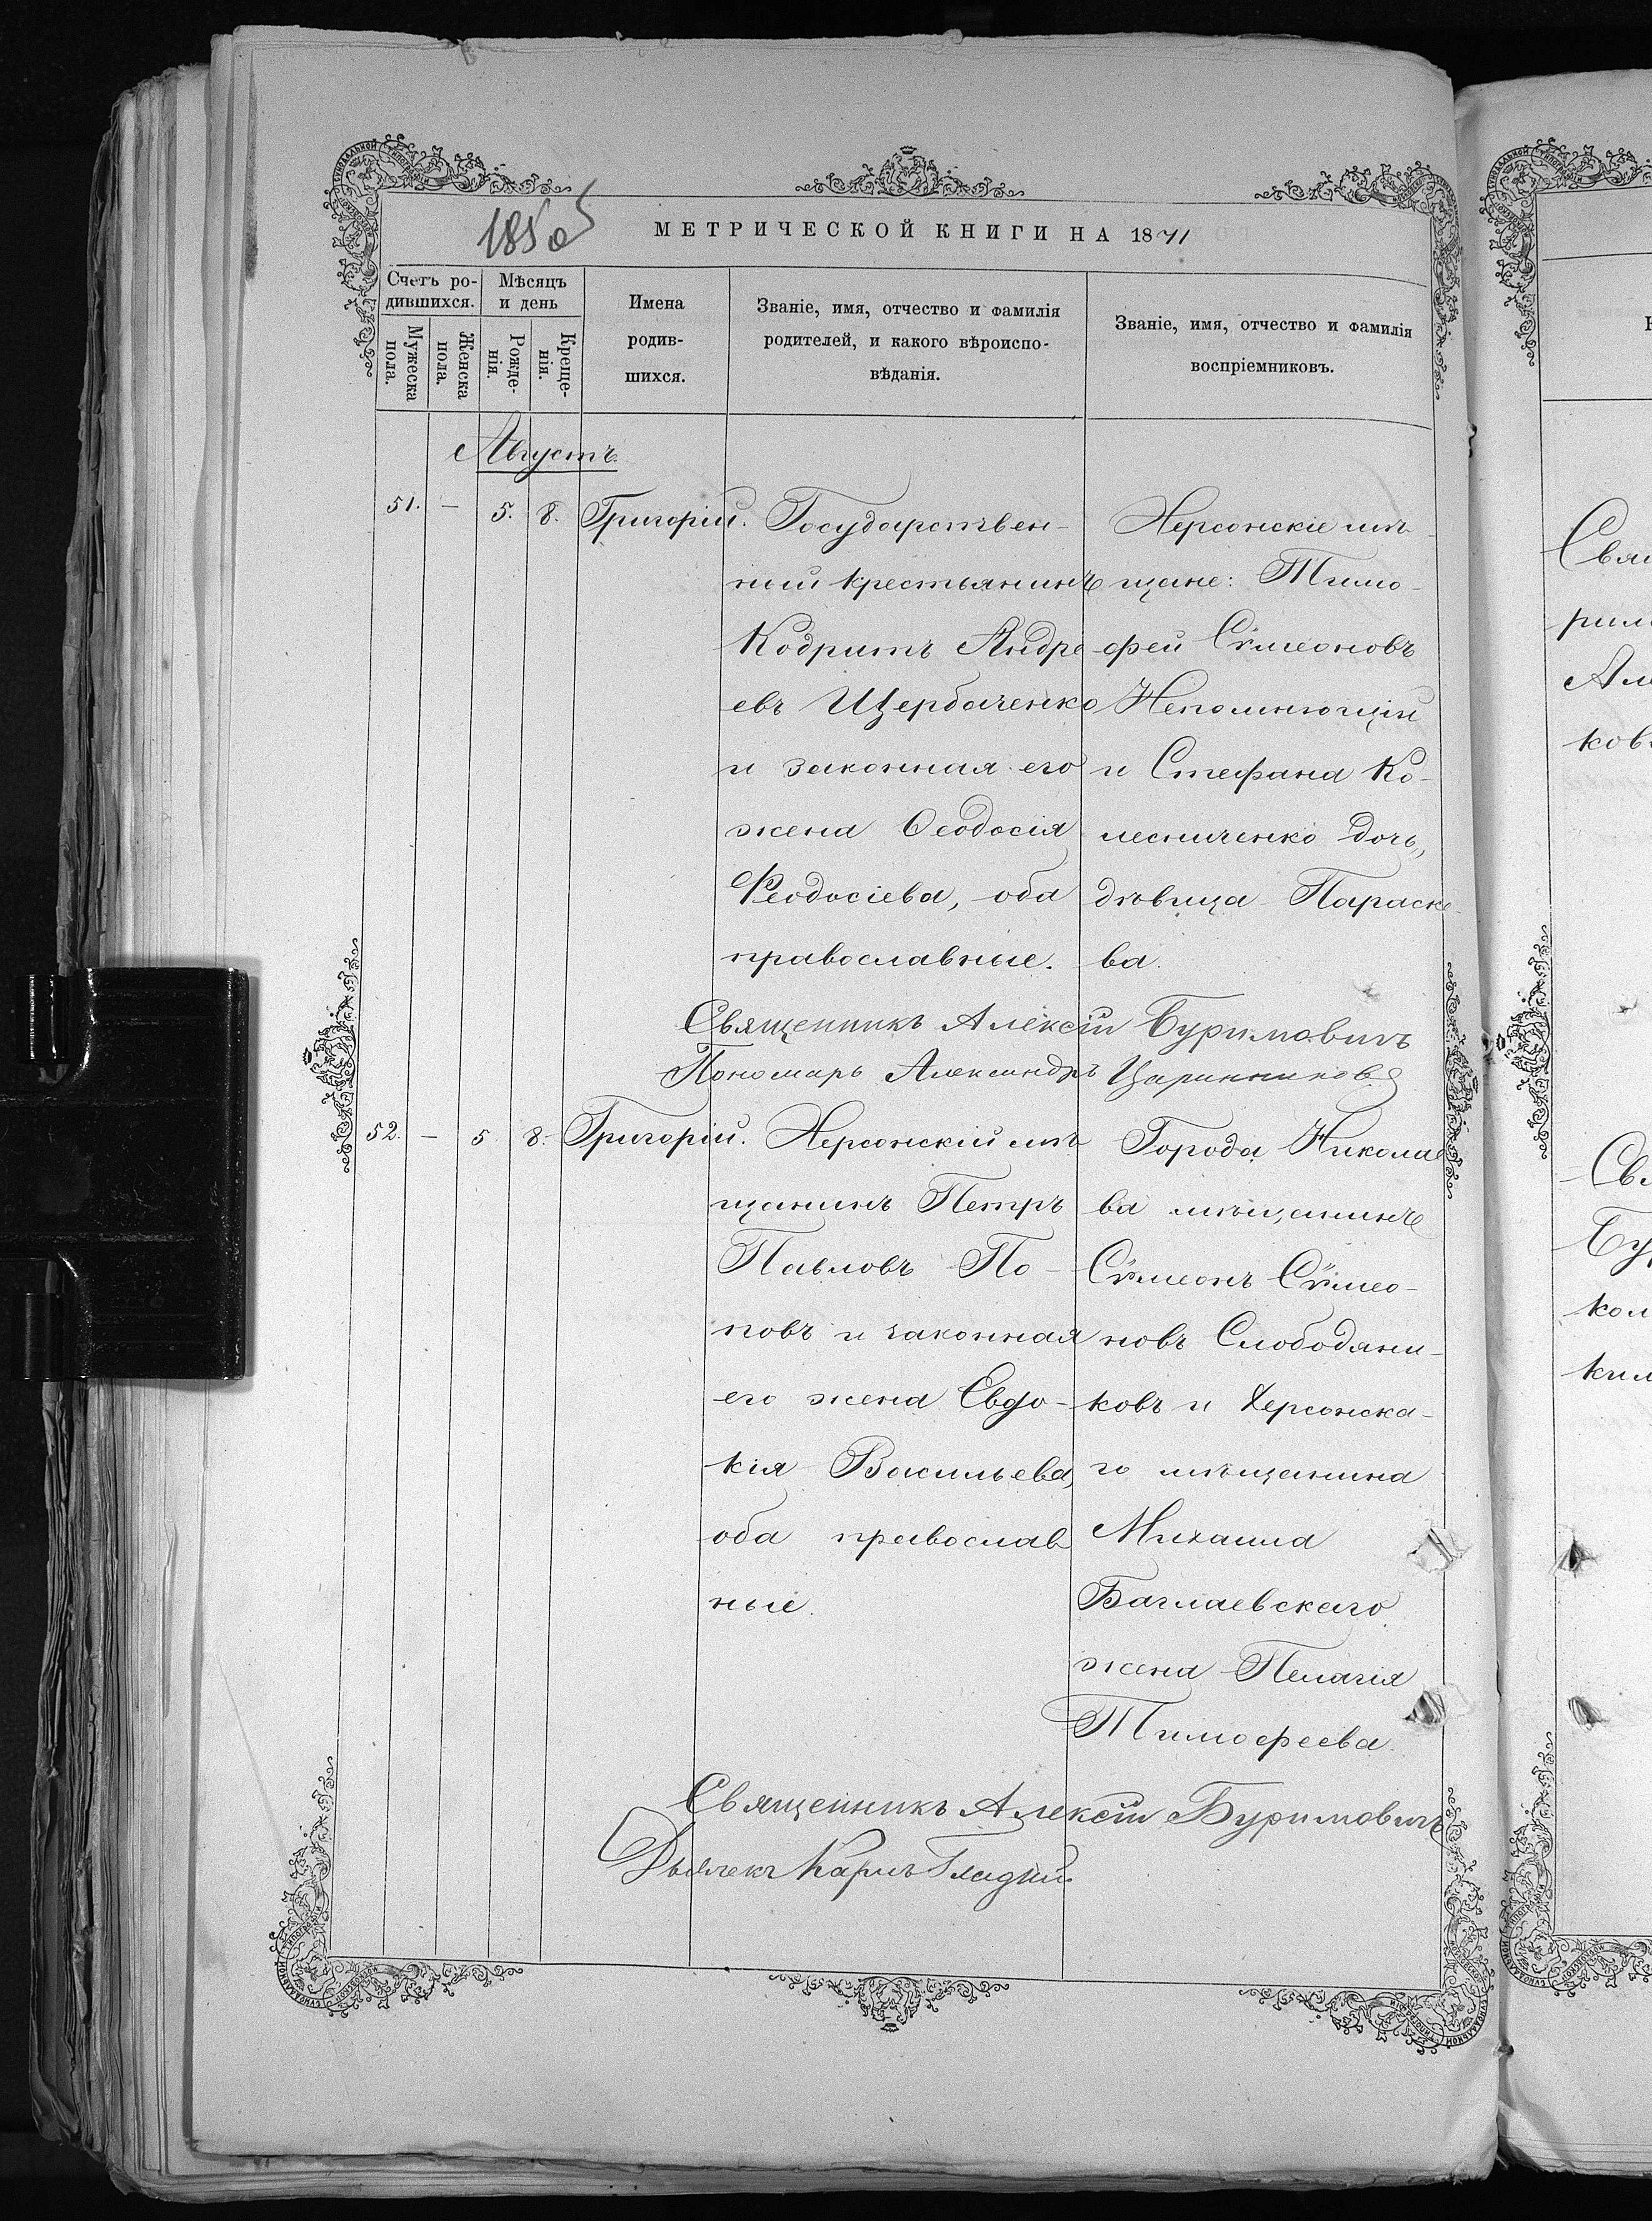 1850
МЕТРИЧЕСКОЙ КНИГИ НА 1871
Счетъ ро-
дившихся.
Мужеска
пола.
Женска
пола.
Мѣсяцъ
и день
Рожде-
нія.
Креще-
нія.
Имена
родив-
шихся.
Званіе, имя, отчество и фамилія
родителей, и какого вѣроиспо-
вѣданія.
Званіе, имя, отчество и фамилія
воспріемниковъ.
Августъ.
51. — 5. 8. Григорій.
Государствен-
ный крестьянинъ
Кодритъ Андре
евъ Щербаченко
и законная его
жена Ѳеодосія
Феодосіева, оба
православные.
Херсонскіе мѣ-
щане: Тимо-
фей Сѵмеоновъ
Непомнющій
и Стефана Ко-
лесниченко дочь,
дѣвица Параске-
ва.
Священникъ Алексій Буримовичъ
Пономарь Александръ Царинниковъ
52. — 5 8. Григорій.
Херсонскій мѣ
щанинъ Петръ
Павловъ По-
повъ и законная
его жена Евдо-
кія Васильева,
оба православ
ные.
Города Никола
ева мѣщанинъ
Сѵмеонъ Сѵмео-
новъ Слободяни-
ковъ и Херсонска-
го мѣщанина
Михаила
Баглаевскаго
жена Пелагія
Тимофеева.
Священникъ Алексій Буримовичъ
Дьячекъ Карпъ Гладкий